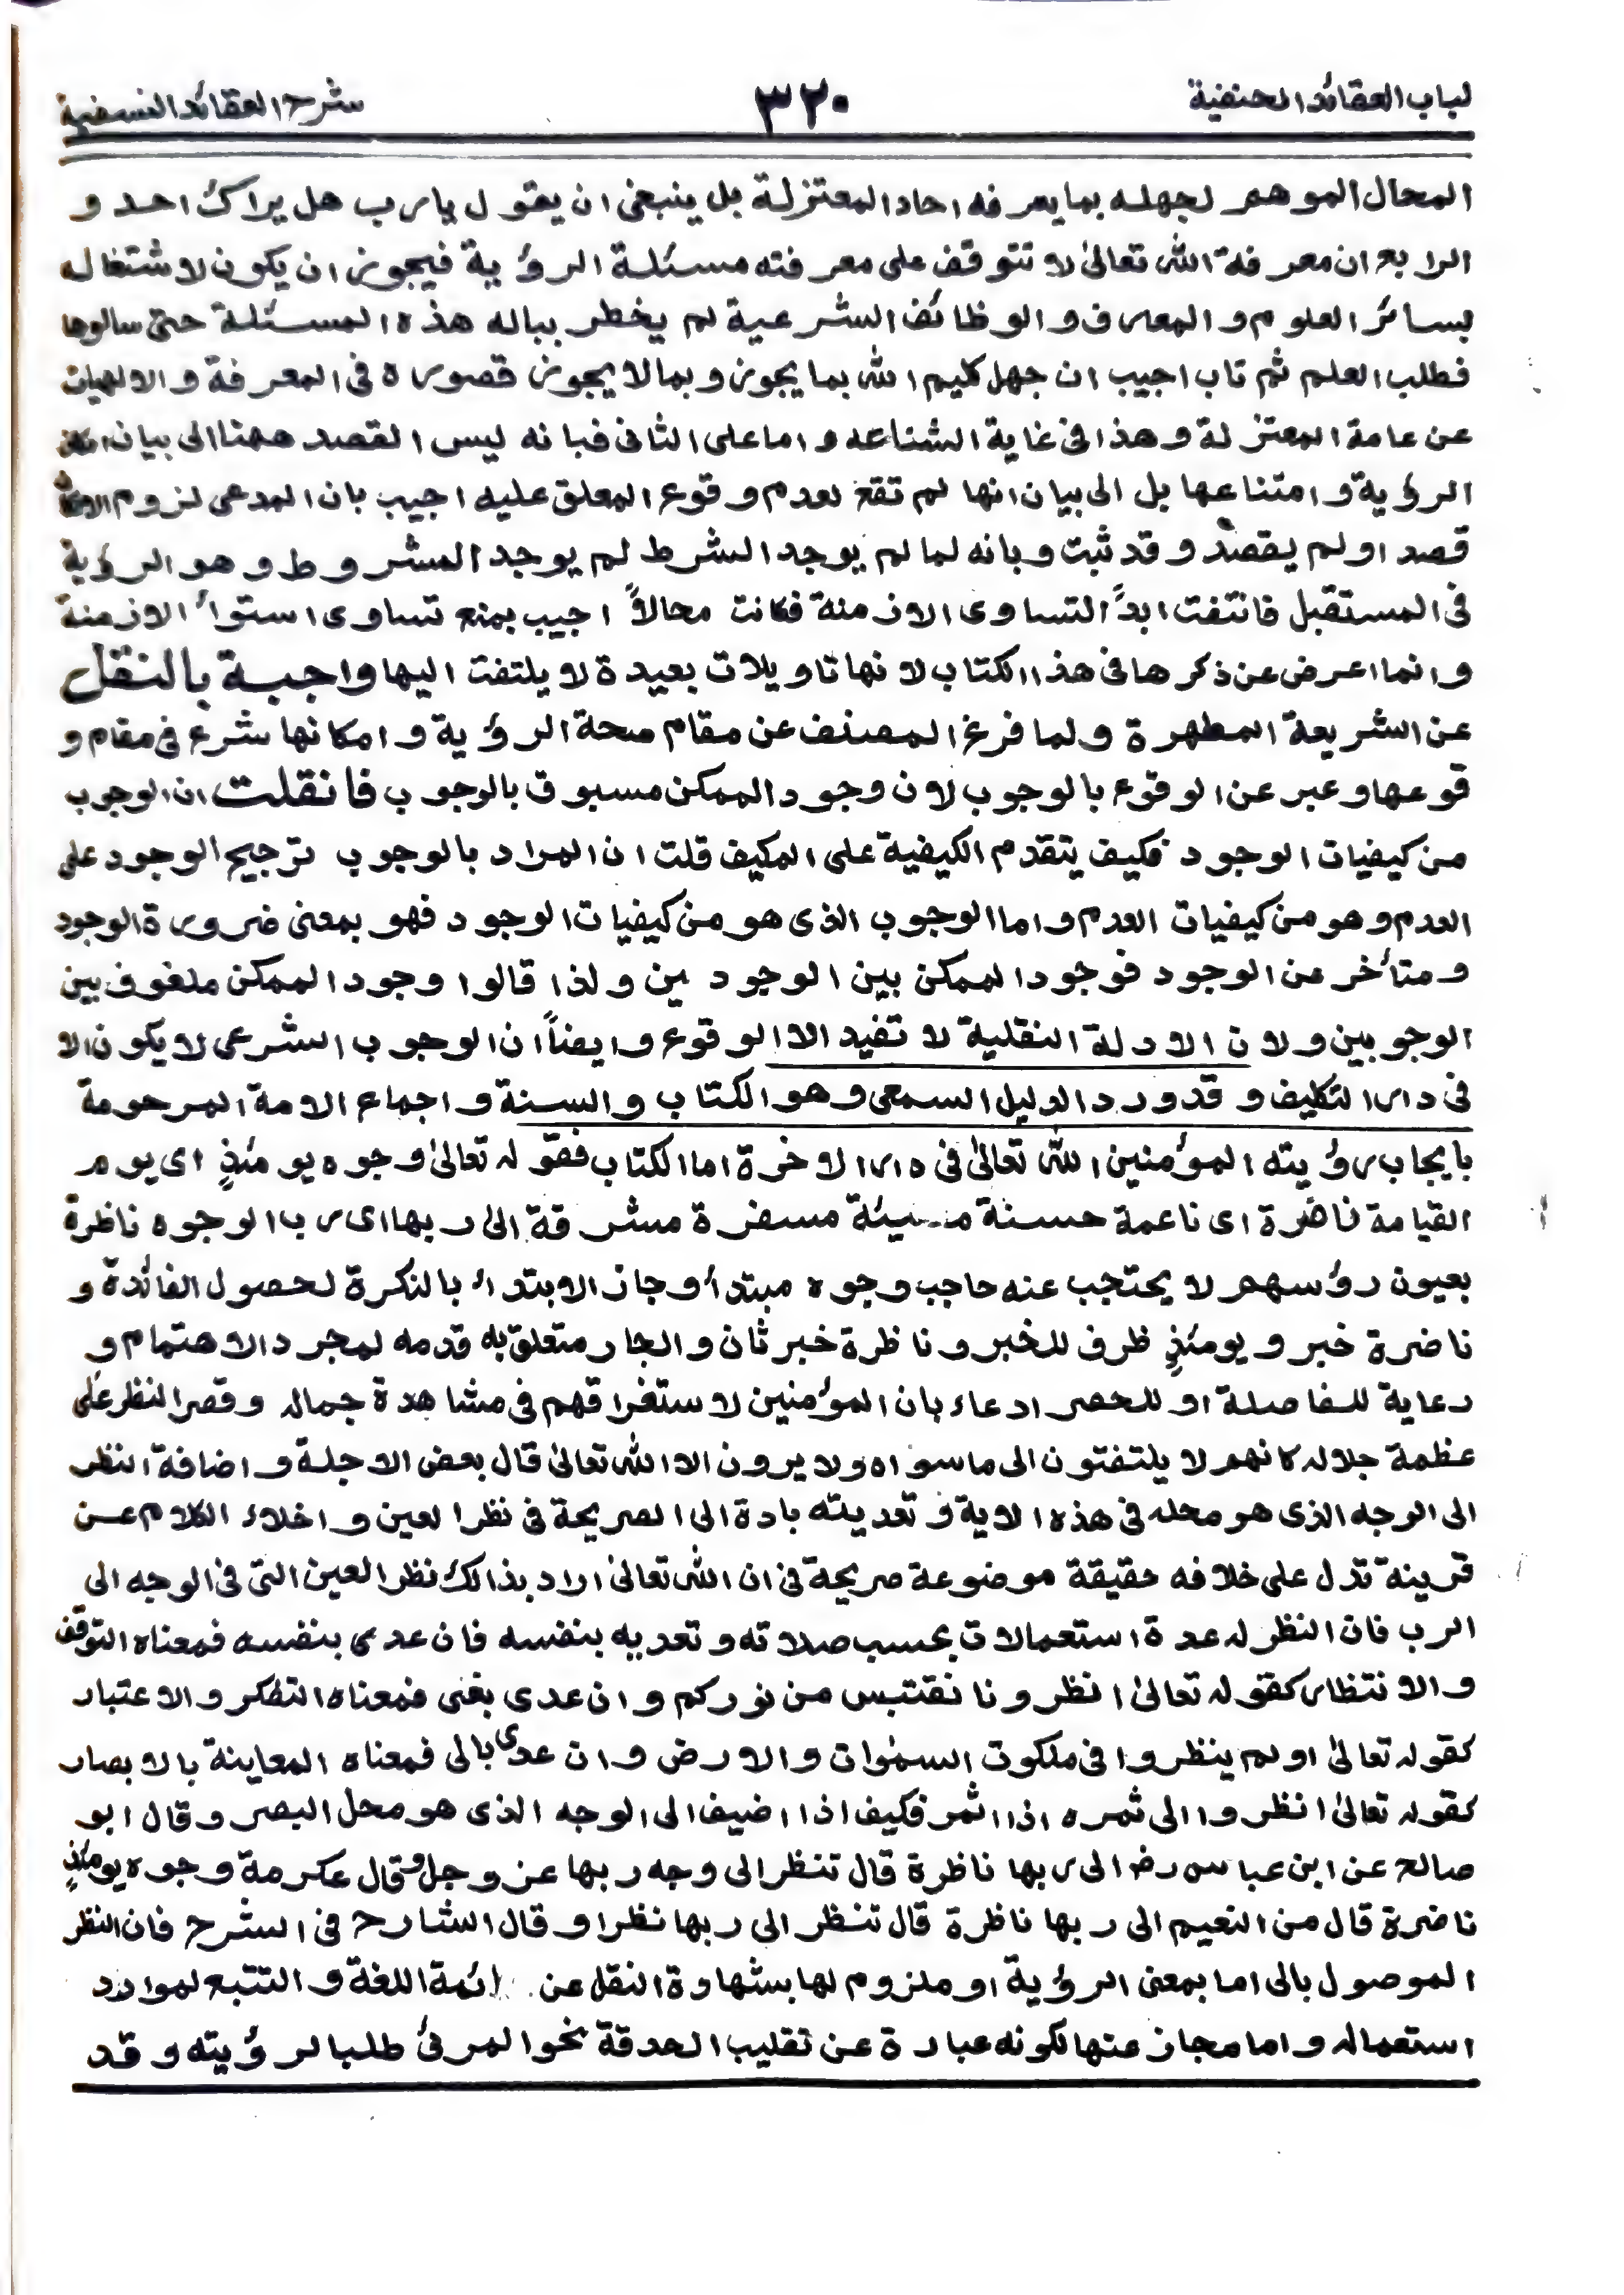 لباب العقائد الحنفية ٣٢٠ شرح العقائد النسفية
المحال الموهم لجهله بما يعرفه احاد المعتزلة بل ينبغى ان يقول يارب هل يراك احد و
الرابع ان معرفة الله تعالىٰ لا تتوقف على معرفته مسئلة الرؤية فيجوز ان يكون لاشتغاله
بسائر العلوم و المعارف و الوظائف الشرعية لم يخطر بباله هذه المسئلة حتى سالوها
فطلب العلم ثم تاب اجيب ان جهل كليم الله بما يجوز و بما لا يجوز قصوره فى المعرفة و الالهيات
عن عامة المعتزلة و هذا فى غاية الشناعه و اما على الثانى فبانه ليس القصد ههنا الى بيان
الرؤية و امتناعها بل الى بيان انها لم تقع لعدم و قوع المعلق عليه اجيب بان المدعى لزوم الامكان
قصد او لم يقصد و قد ثبت و بانه لما لم يوجد الشرط لم يوجد المشروط و هو الرؤية
فى المستقبل فانتفت ابداً التساوى الازمنة فكانت محالاً اجيب بمنع تساوى استواء الازمنة
و انما اعرض عن ذكرها فى هذا الكتاب لانها تاويلات بعيدة لا يلتفت اليها واجبة بالنقل
عن الشريعة المطهرة و لما فرغ المصنف عن مقام صحة الرؤية و امكانها شرع فى مقام و
قوعها و عبر عن الوقوع بالوجوب لان وجود الممكن مسبوق بالوجوب فان قلت ان الوجوب
من كيفيات الوجود فكيف يتقدم الكيفية على المكيف قلت ان المراد بالوجوب ترجيح الوجود على
العدم و هو من كيفيات العدم و اما الوجوب الذى هو من كيفيات الوجود فهو بمعنى ضرورة الوجود
و متأخر عن الوجود فوجود الممكن بين الوجودين و لذا قالوا وجود الممكن ملفوف بين
الوجوبين و لان الادلة النقلية لا تفيد الا الوقوع و ايضاً ان الوجوب الشرعى لا يكون الا
فى دار التكليف و قد ورد الدليل السمعى و هو الكتاب و السنة و اجماع الامة المرحومة
بايجاب رؤيته المؤمنين الله تعالىٰ فى دار الاخرة اما الكتاب فقوله تعالىٰ وجوه يومئذٍ اى يوم
القيامة ناضرة اى ناعمة حسنة مسفرة مشرقة الىٰ ربها اى رب الوجوه ناظرة
بعيون رؤسهم لا يحتجب عنه حاجب وجوه مبتدأ و جاز الابتداء بالنكرة لحصول الفائدة و
ناضرة خبر و يومئذٍ ظرف للخبر و ناظرة خبر ثان و الجار متعلق به قدمه لمجرد الاهتمام و
رعاية للفاصلة او للحصر ادعاء بان المؤمنين لاستغراقهم فى مشاهدة جماله و قصر النظر على
عظمة جلاله كانهم لا يلتفتون الى ما سواه و لا يرون الا الله تعالىٰ قال بعض الاجلة و اضافة النظر
الى الوجه الذى هو محله فى هذه الاية و تعديته باداة الى الصريحة فى نظر العين و اخلاء الكلام عن
قرينة تدل على خلافه حقيقة موضوعة صريحة فى ان الله تعالىٰ اراد بذالك نظر العين التى فى الوجه الى
الرب فان النظر له عدة استعمالات بحسب صلاته و تعديه بنفسه فان عدى بنفسه فمعناه التوقف
و الانتظار كقوله تعالىٰ انظرونا نقتبس من نوركم و ان عدى بفى فمعناه التفكر و الاعتبار
كقوله تعالىٰ اولم ينظروا فى ملكوت السمٰوات و الارض و ان عدى بالى فمعناه المعاينة بالابصار
كقوله تعالىٰ انظروا الى ثمره اذا اثمر فكيف اذا اضيف الى الوجه الذى هو محل البصر و قال ابو
صالح عن ابن عباس رض الى ربها ناظرة قال تنظر الى وجه ربها عز و جل و قال عكرمة وجوه يومئذٍ
ناضرة قال من النعيم الى ربها ناظرة قال تنظر الى ربها نظرا و قال الشارح فى الشرح فان النظر
الموصول بالى اما بمعنى الرؤية او ملزوم لها بشهادة النقل عن ائمة اللغة و التتبع لموارد
استعماله و اما مجاز عنها لكونه عبارة عن تقليب الحدقة نحو المرئ طلبا لرؤيته و قد